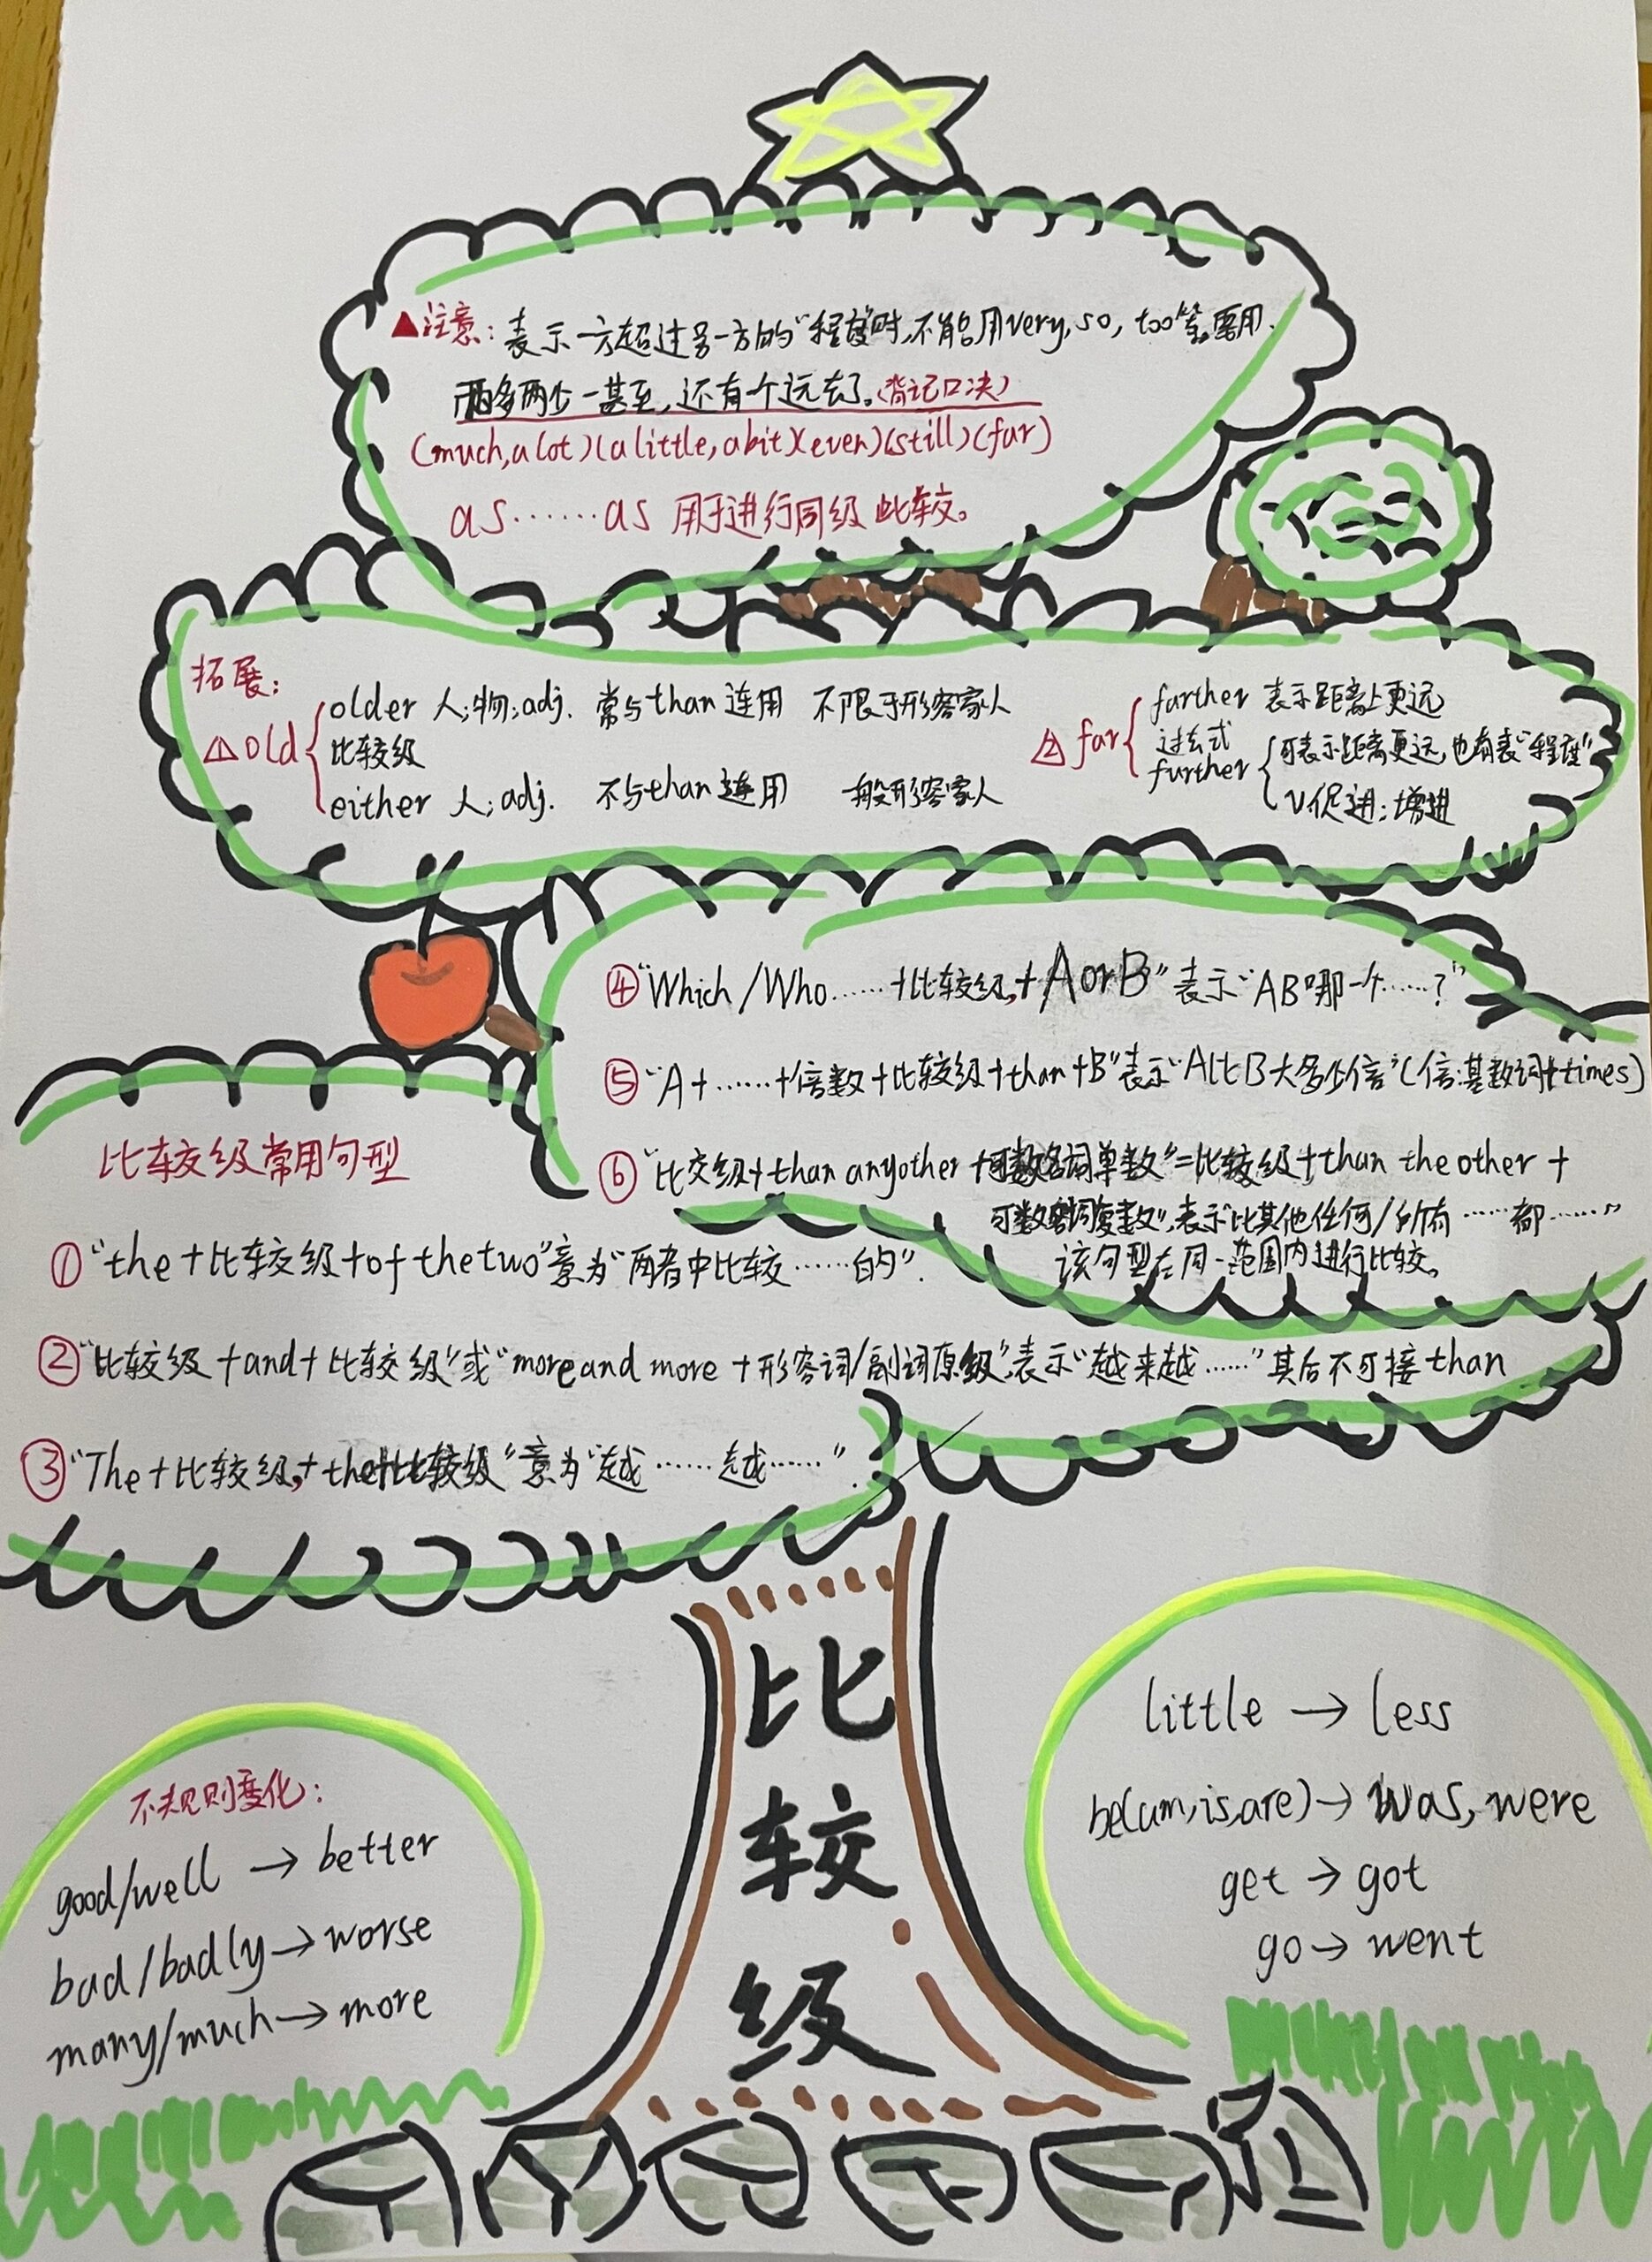 ▲注意:表示一方超过另一方的“程度”时,不能用very,so,too等.要用
两多两少一甚至,还有个远去了。(背记口决)
(much,a lot)(a little,a bit)(even)(still)(far)
as……as 用于进行同级比较。
拓展:
⚠1 old
older 人;物;adj. 常与than连用 不限于形容家人
比较级
either 人;adj. 不与than连用 一般形容家人
⚠2 far
farther 表示距离上更远
过去式
further
可表示距离更远,也有表“程度”
v促进;增进
④“Which/Who……+比较级,+A or B”表示“AB哪一个……?”
⑤“A+……+倍数+比较级+than+B”表示“A比B大多少倍”(倍:基数词+times)
⑥“比交级+than anyother+可数名词单数”=比较级+than the other+
可数名词复数”,表示“比其他任何/所有……都……”
该句型在同一范围内进行比较。
比较级常用句型
①“the+比较级+of the two”意为“两者中比较……的”.
②“比较级+and+比较级”或“more and more+形容词/副词原级”,表示“越来越……”其后不可接than
③“The+比较级,+the+比较级”意为“越……越……”.
比
较
级
不规则变化:
good/well→better
bad/badly→worse
many/much→more
little→less
be(am,is,are)→was,were
get→got
go→went